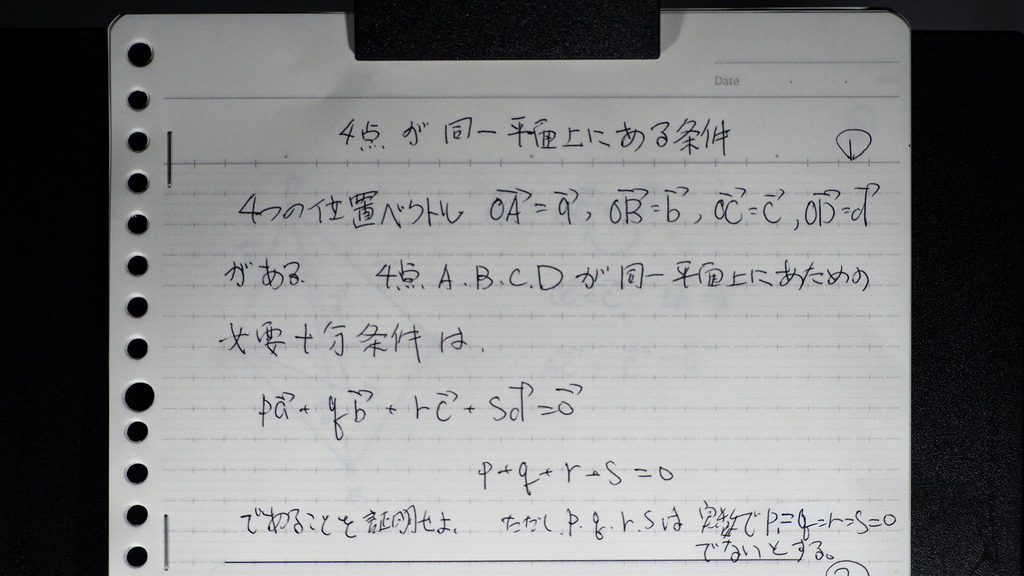 Date
4点が同一平面上にある条件 ①
4つの位置ベクトル OA=a, OB=b, OC=c, OD=d
がある 4点A.B.C.Dが同一平面上にあための
必要十分条件は、
pa + qb + rc + sd = 0
p+q+r+s=0
であることを証明せよ。 ただし p.q.r.sは 実数で p=q=r=s=0
でないとする。
②